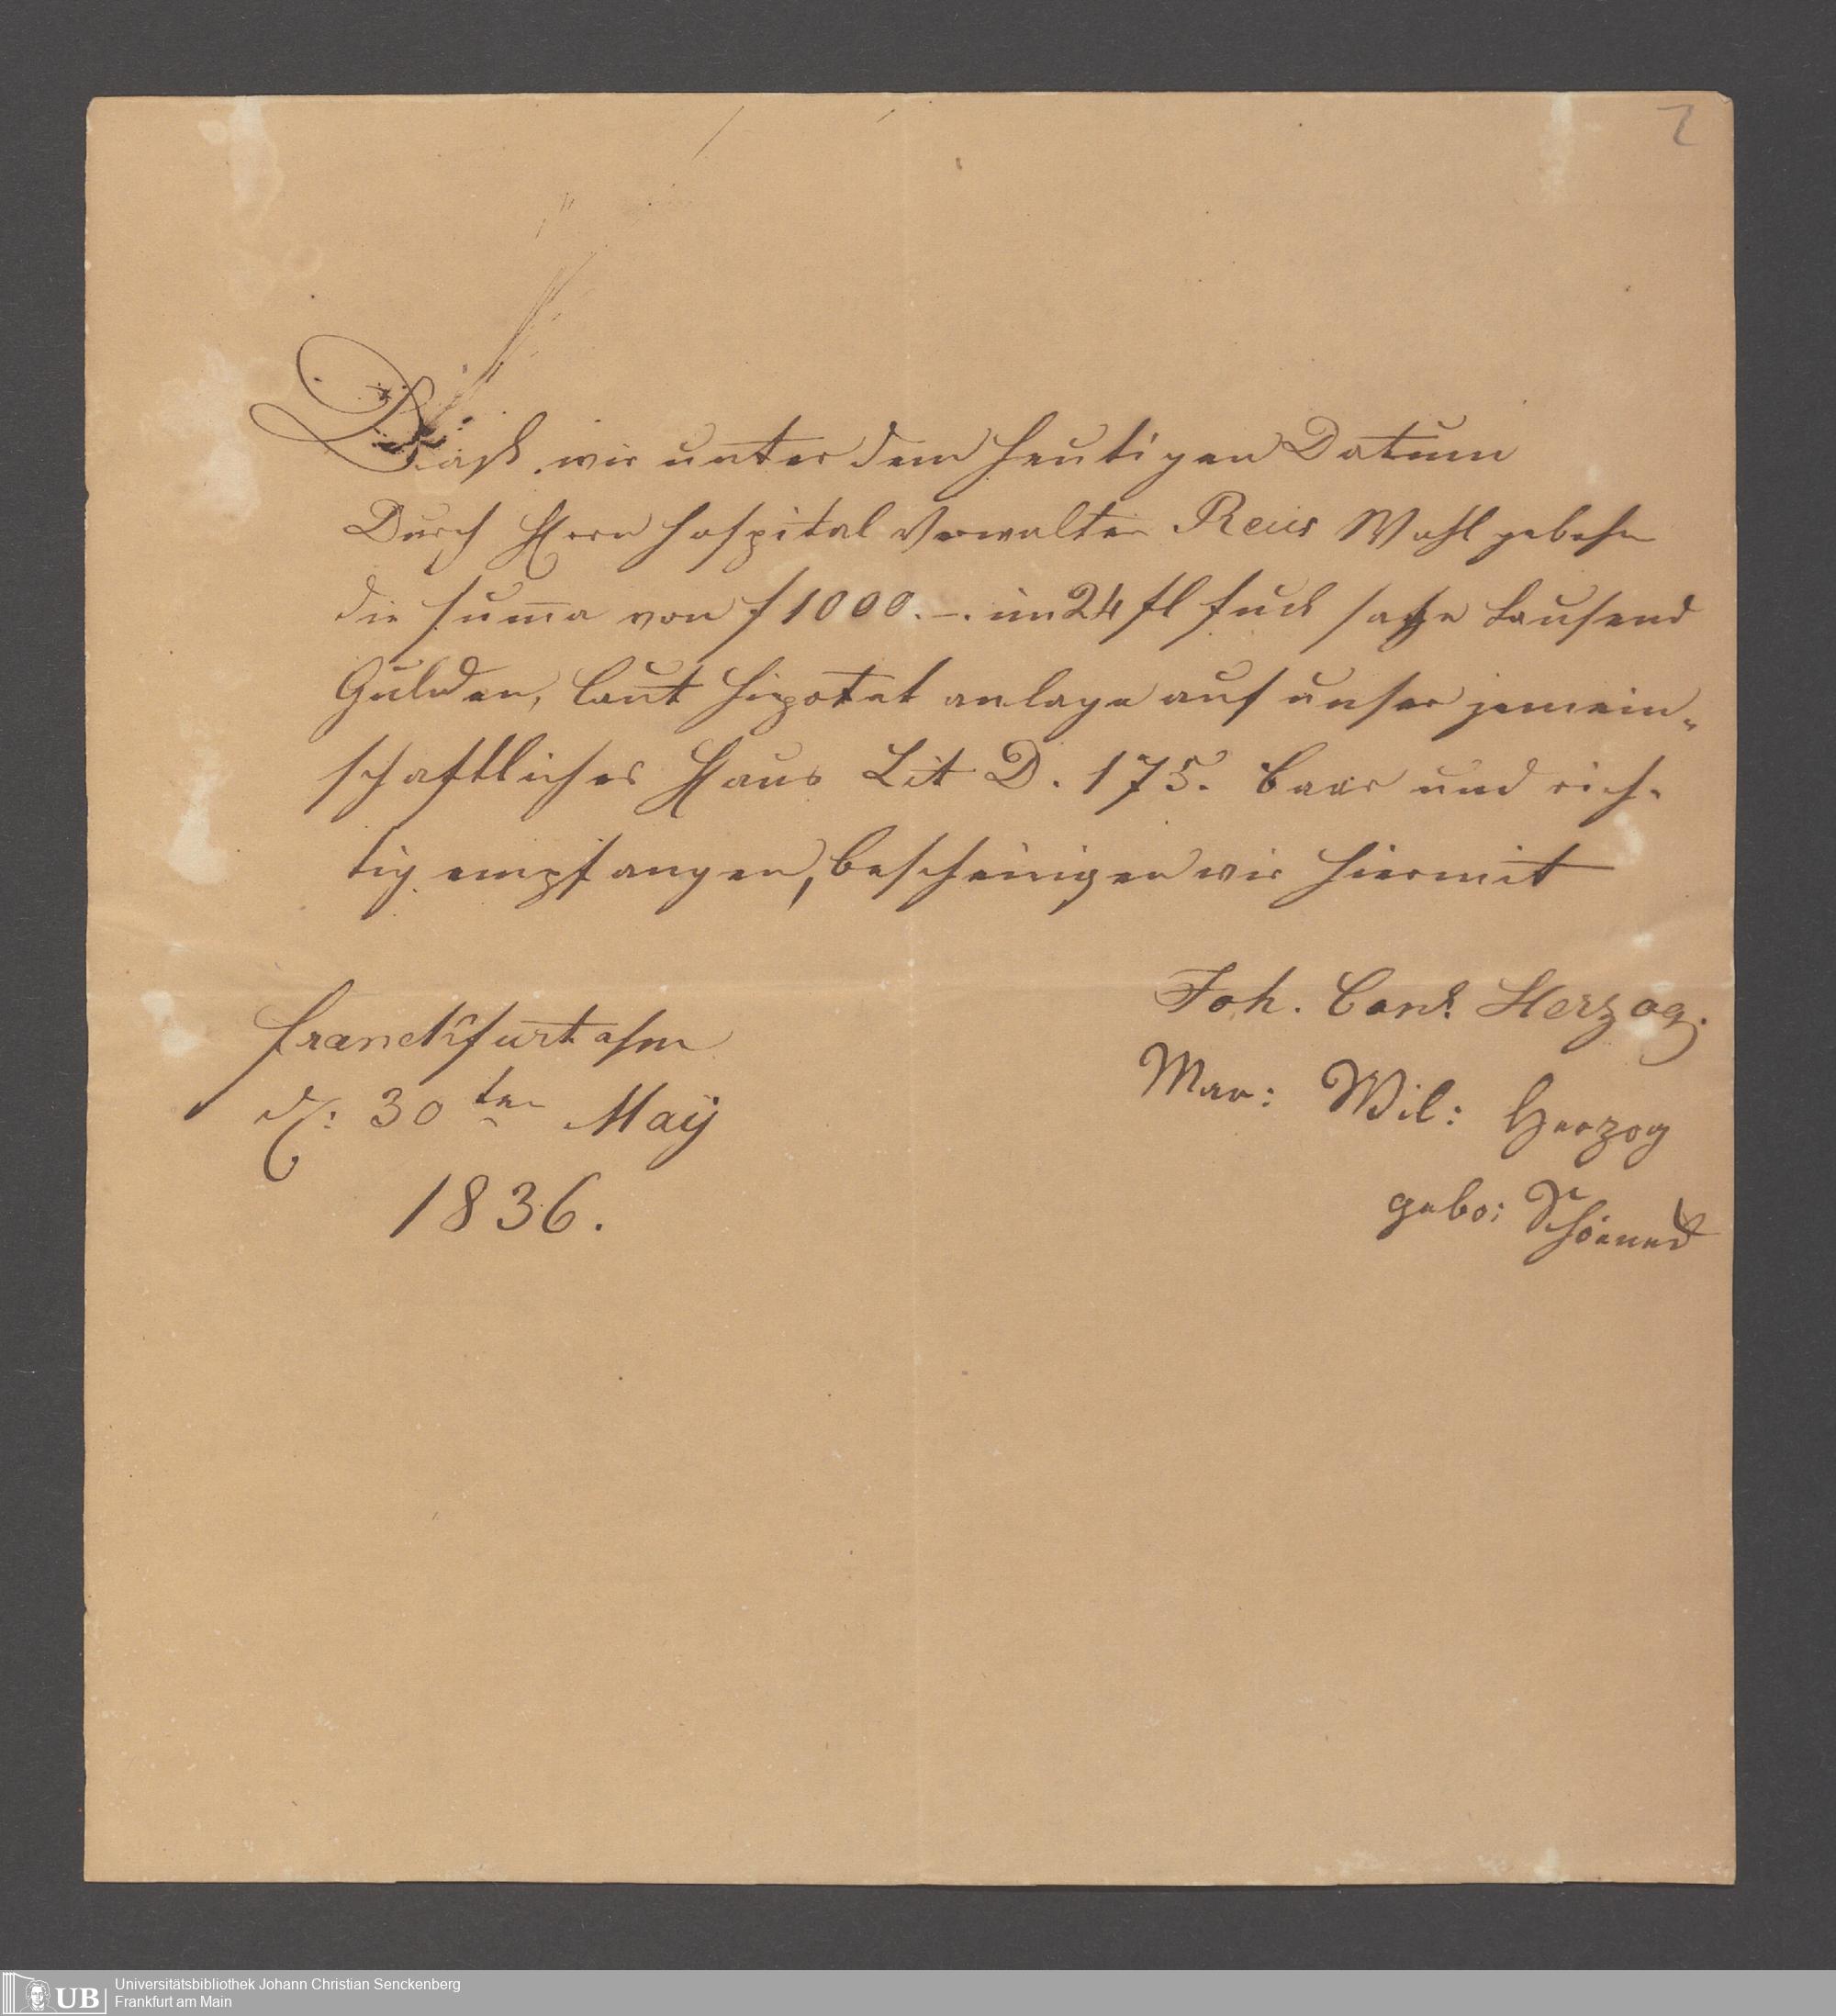 2
Daß wir unter dem heutigen Datum
Durch Herrn Hospital Verwalter Reus Wohlgeborn
die suma von f 1000.–. im 24 fl fuß sage tausend
Gulden, laut Hipotek anlage auf unser gemein„
schaftliches Haus Lit D. 175. baar und rich„
tig empfangen, bescheinigen wir hiermit
Joh. Conr. Herzog.
Mar: Wil: Herzog
gebo:
franckfurt a/m
d: 30ten Maÿ
1836.
UB
Universitätsbibliothek Johann Christian Senckenberg
Frankfurt am Main